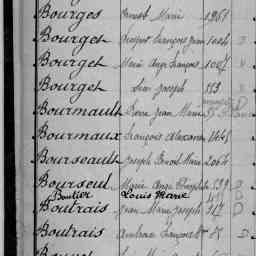 Bourges Ernest Marie 1961
Bourget François Jean 1004 D
Bourget Marie Ange François 1007 D
Bourget Jean Joseph 553 D
Bourmault Pierre Jean Marie D
Bourmaux François Alexandre 1445
Bourseault Joseph Benoit Marie 2064
Bourseul Marie Ange Théophile 539 D
Boutier Louis Marie D
Boutrais Jean Marie Joseph 517 D
Boutrais Ambroise François D